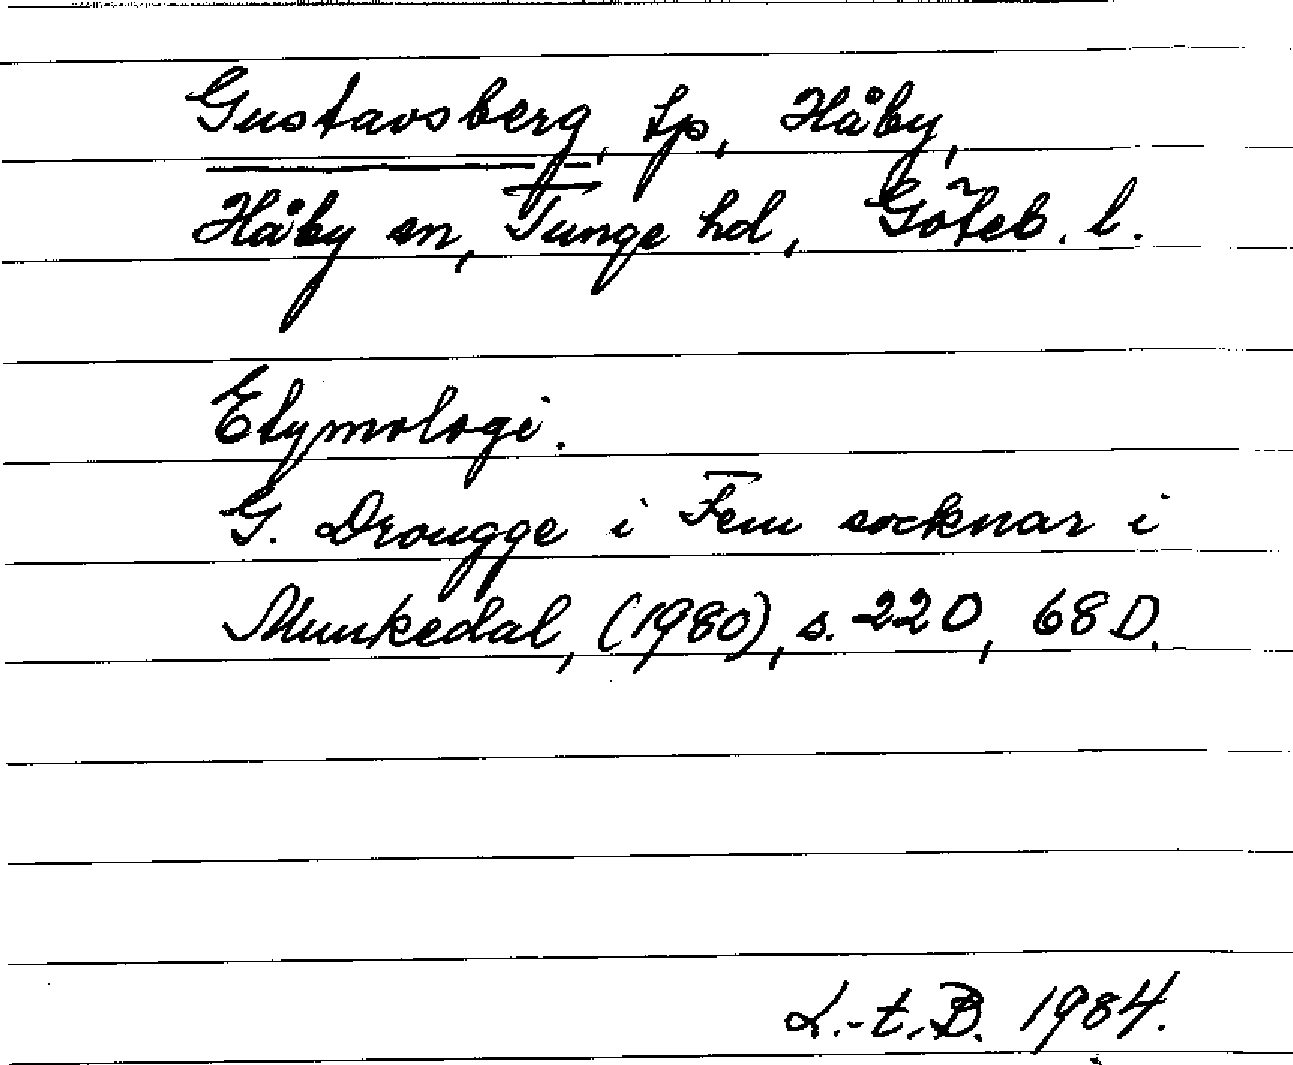 Gustavsberg, tp, Håby,
Håby sn, Tunge hd, Göteb. l.
Etymologi.
G. Drougge i Fem socknar i
Munkedal, (1980), s. 220, 68D.
L.-t.B. 1984.